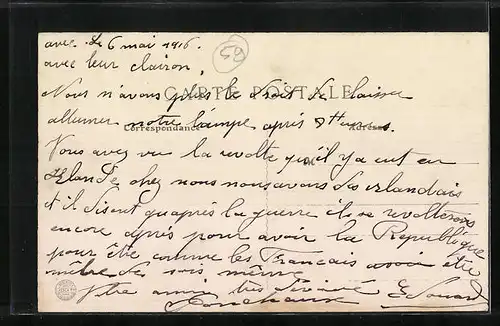 avec. Le 6 mai 1916.
59
avec leur clairon,
CARTE POSTALE
Nous n'avons plus le droit de laisser
Correspondance
Adresse
allumer notre lampe après 8 Heures.
Vous avez vu la revolte qu'il y a eut en
Irlande, chez nous nous avons des irlandais
et il disent qu'après la guerre ils se revolterons
encore après pour avoir la Republique
pour être comme les Francais avoir être
même de sois même
Votre ami très dévoué Edouard